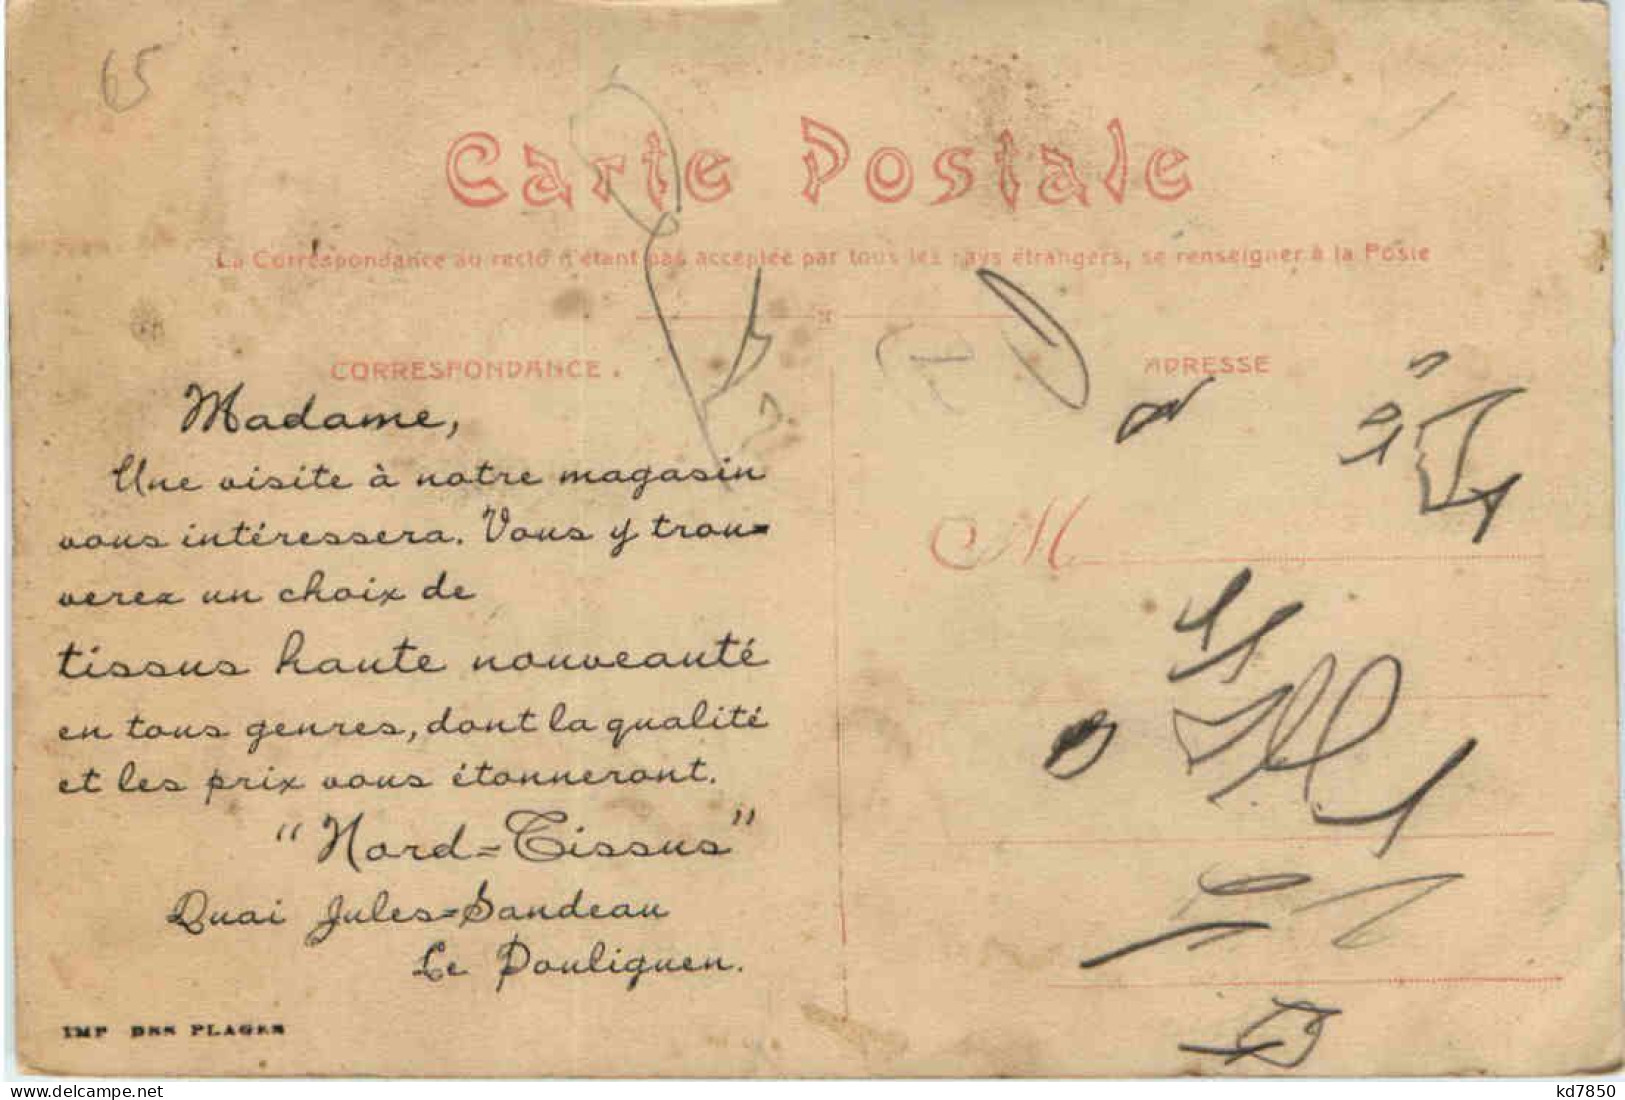 65
Carte Postale
La Correspondance au recto n'étant pas acceptée par tous les pays étrangers, se renseigner à la Poste
CORRESPONDANCE.
ADRESSE
Madame,
Une visite à notre magasin
vous intéressera. Vous y trou=
verez un choix de
tissus haute nouveauté
en tous genres, dont la qualité
et les prix vous étonneront.
"Nord=Tissus"
Quai Jules=Sandeau
Le Pouliguen.
IMP DES PLAGES
M
delcampe.net
kd7850